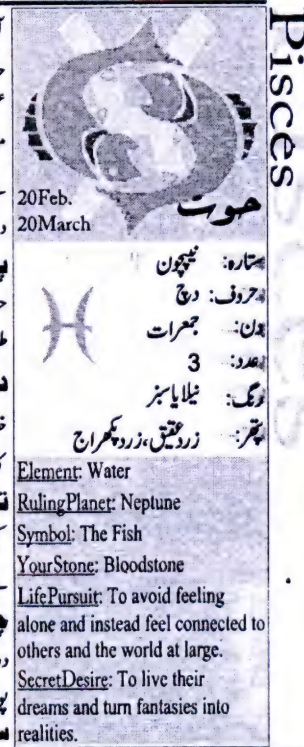 Pisces
20Feb.
20March
حوت
ستارہ: نیپچون
حروف: دچ
دن: جمعرات
عدد: 3
رنگ: نیلا یا سبز
پتھر: زرد عقیق، زرد پکھراج
Element: Water
RulingPlanet: Neptune
Symbol: The Fish
YourStone: Bloodstone
LifePursuit: To avoid feeling
alone and instead feel connected to
others and the world at large.
SecretDesire: To live their
dreams and turn fantasies into
realities.